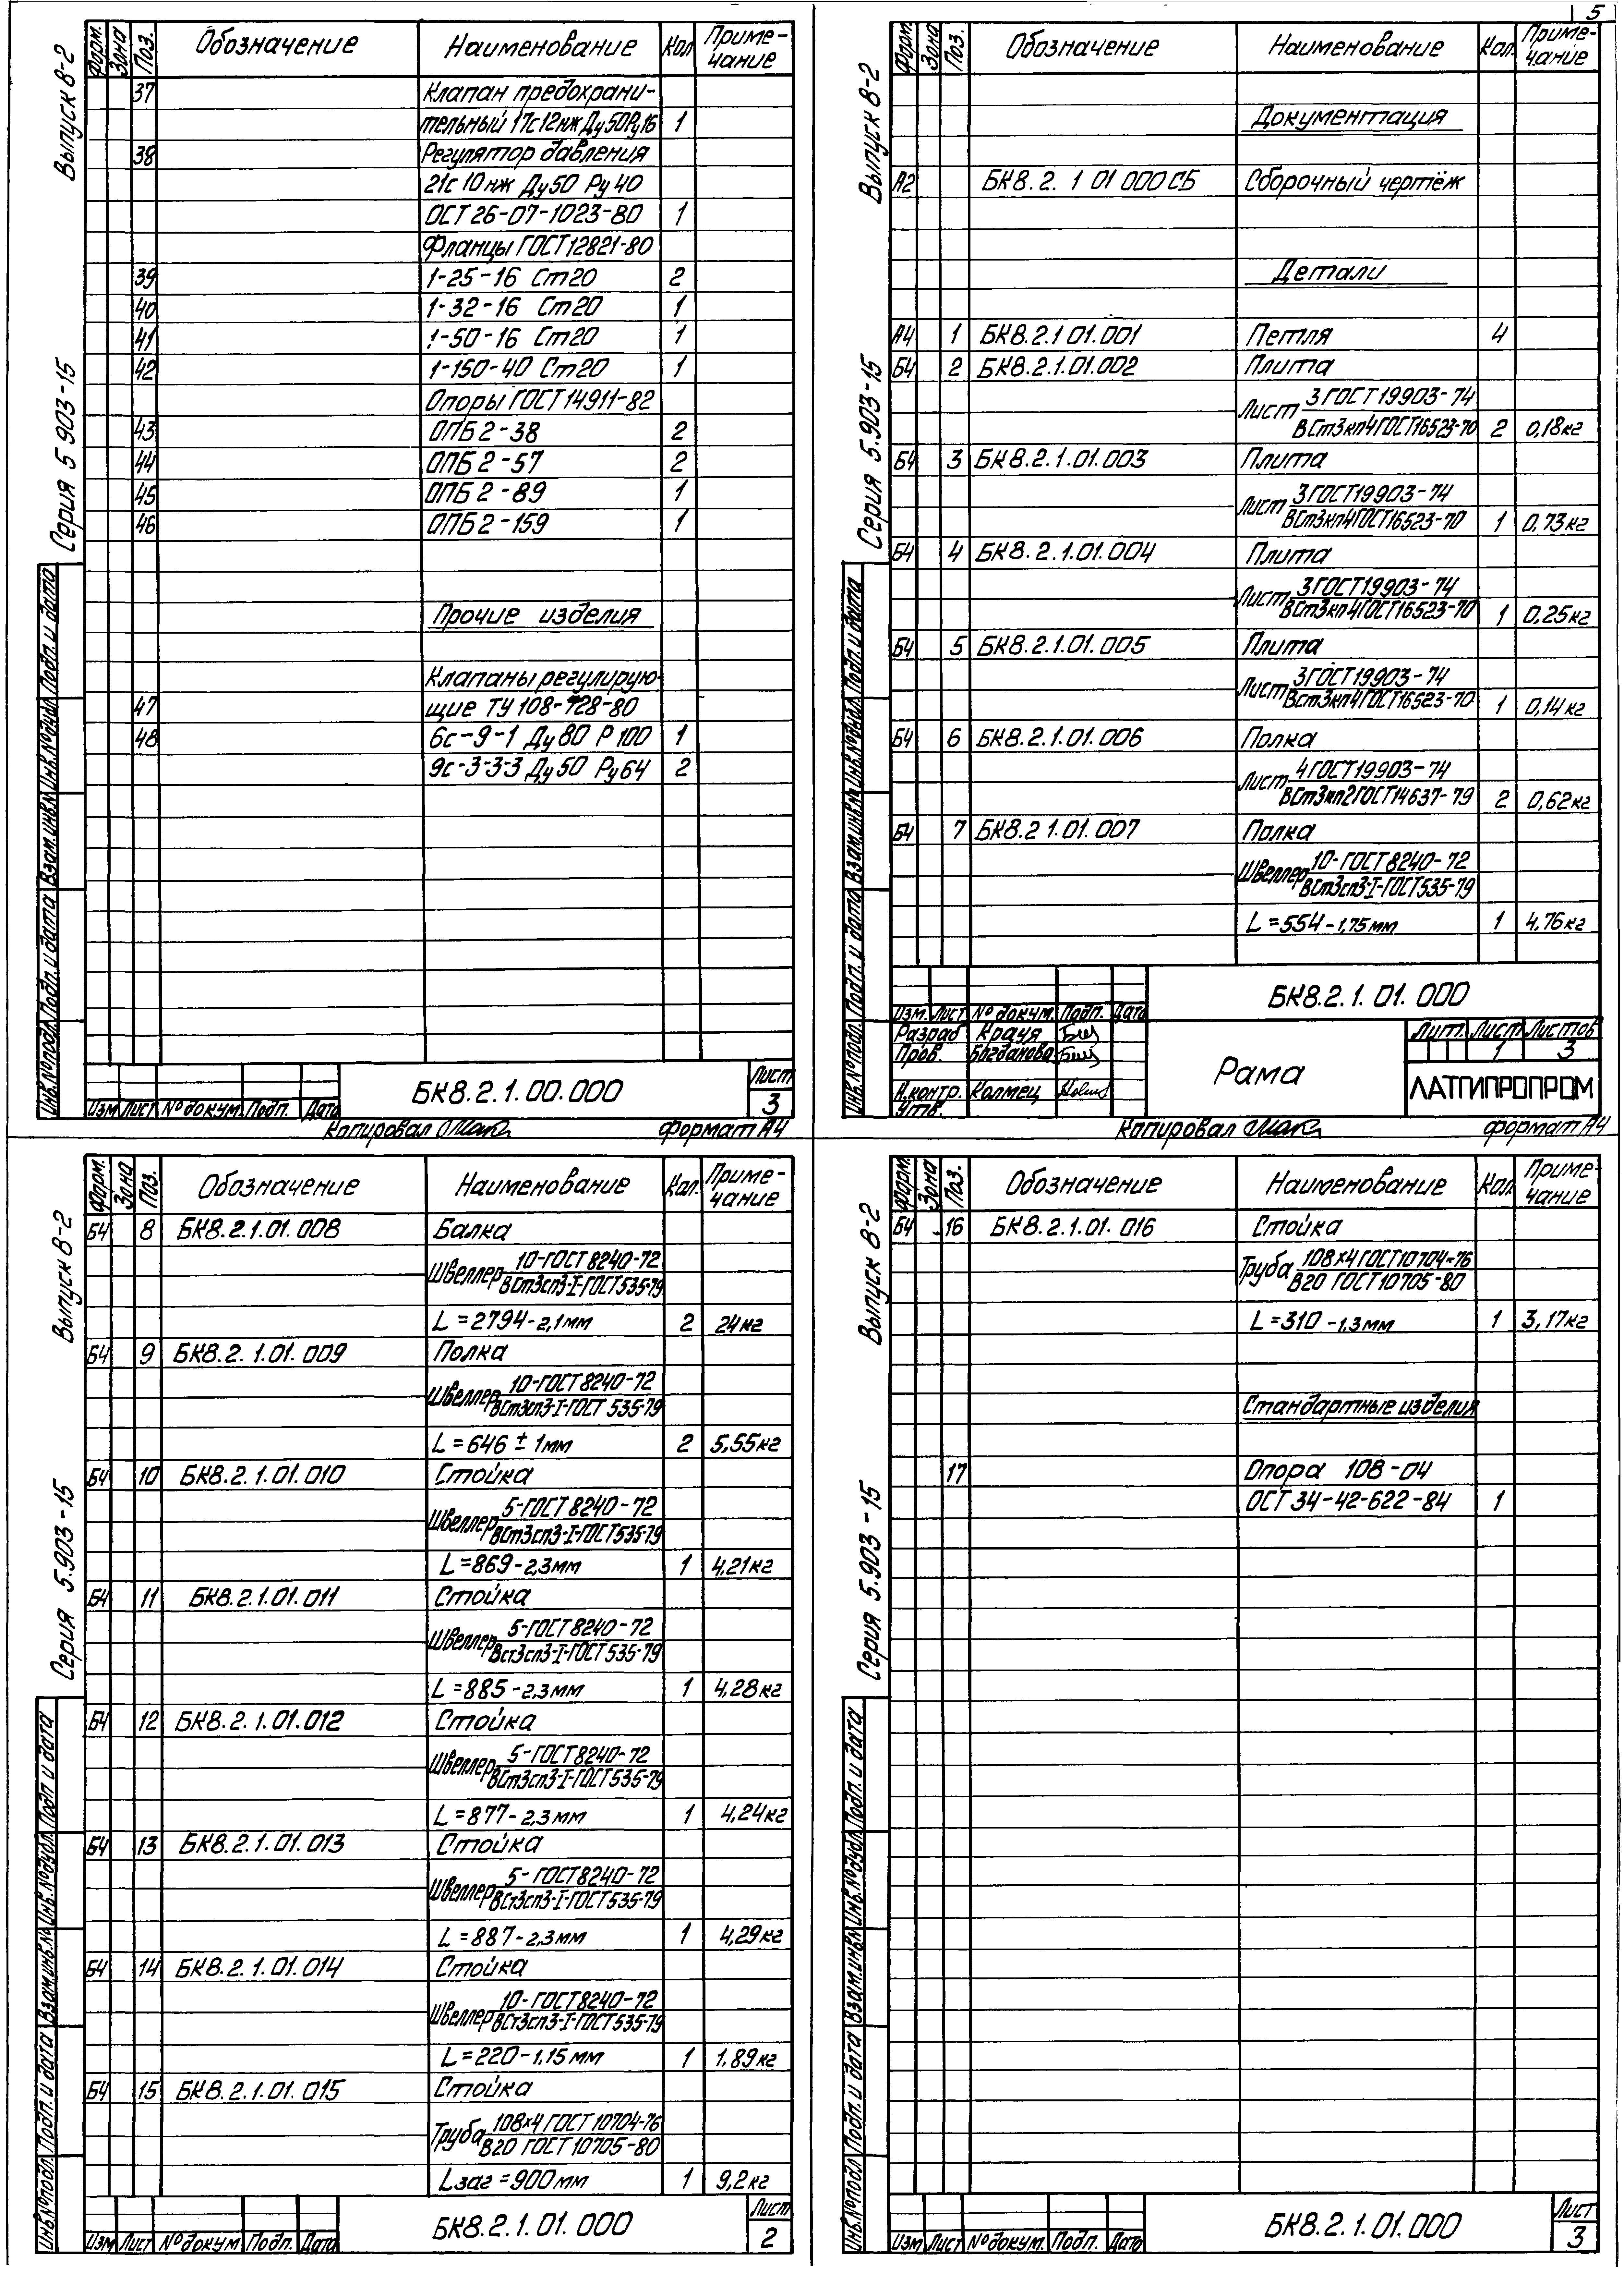 5
Выпуск 8-2
Серия 5 903-15
Форм. Зона Поз. Обозначение Наименование Кол. Примечание
37 Клапан предохрани-
тельный 17с12нж Ду50Ру16 1
38 Регулятор давления
21с10нж Ду50 Ру40
ОСТ 26-07-1023-80 1
Фланцы ГОСТ12821-80
39 1-25-16 Ст20 2
40 1-32-16 Ст20 1
41 1-50-16 Ст20 1
42 1-150-40 Ст20 1
Опоры ГОСТ14911-82
43 ОПБ2-38 2
44 ОПБ2-57 2
45 ОПБ2-89 1
46 ОПБ2-159 1
Прочие изделия
Клапаны регулирую-
47 щие ТУ 108-728-80
48 6с-9-1 Ду80 Р100 1
9с-3-3-3 Ду50 Ру64 2
Инв.№подл. Подп. и дата Взам.инв.№ Инв.№дубл. Подп. и дата
Изм Лист №докум. Подп. Дата
БК8.2.1.00.000
Лист
3
Копировал
формат А4
Выпуск 8-2
Серия 5.903-15
Форм. Зона Поз. Обозначение Наименование Кол. Примечание
Документация
А2 БК8.2.1 01 000СБ Сборочный чертёж
Детали
А4 1 БК8.2.1 01.001 Петля 4
Б4 2 БК8.2.1.01.002 Плита
Лист 3 ГОСТ19903-74
ВСт3кп4ГОСТ16523-70 2 0,18кг
Б4 3 БК8.2.1.01.003 Плита
Лист 3ГОСТ19903-74
ВСт3кп4ГОСТ16523-70 1 0,73кг
Б4 4 БК8.2.1.01.004 Плита
Лист 3ГОСТ19903-74
ВСт3кп4ГОСТ16523-70 1 0,25кг
Б4 5 БК8.2.1.01.005 Плита
Лист 3ГОСТ19903-74
ВСт3кп4ГОСТ16523-70 1 0,14кг
Б4 6 БК8.2.1.01.006 Полка
Лист 4ГОСТ19903-74
ВСт3кп2ГОСТ14637-79 2 0,62кг
Б4 7 БК8.2 1.01.007 Полка
Швеллер 10-ГОСТ8240-72
ВСт3сп3-I-ГОСТ535-79
L=554-1,75мм 1 4,76кг
Инв.№подл. Подп. и дата Взам.инв.№ Инв.№дубл. Подп. и дата
Изм. Лист №докум. Подп. Дата
Разраб Крауя
Пров. Богданова
Н.контр. Колмец
Утв.
БК8.2.1.01.000
Рама
Лит. Лист Листов
1 3
ЛАТГИПРОПРОМ
Копировал
формат А4
Выпуск 8-2
Серия 5.903-15
Форм. Зона Поз. Обозначение Наименование Кол. Примечание
Б4 8 БК8.2.1.01.008 Балка
Швеллер 10-ГОСТ8240-72
ВСт3сп3-I-ГОСТ535-79
L=2794-2,1мм 2 24кг
Б4 9 БК8.2.1.01.009 Полка
Швеллер 10-ГОСТ8240-72
ВСт3сп3-I-ГОСТ 535-79
L=646±1мм 2 5,55кг
Б4 10 БК8.2.1.01.010 Стойка
Швеллер 5-ГОСТ8240-72
ВСт3сп3-I-ГОСТ535-79
L=869-2,3мм 1 4,21кг
Б4 11 БК8.2.1.01.011 Стойка
Швеллер 5-ГОСТ8240-72
Вст3сп3-I-ГОСТ535-79
L=885-2,3мм 1 4,28кг
Б4 12 БК8.2.1.01.012 Стойка
Швеллер 5-ГОСТ8240-72
ВСт3сп3-I-ГОСТ535-79
L=877-2,3мм 1 4,24кг
Б4 13 БК8.2.1.01.013 Стойка
Швеллер 5-ГОСТ8240-72
ВСт3сп3-I-ГОСТ535-79
L=887-2,3мм 1 4,29кг
Б4 14 БК8.2.1.01.014 Стойка
Швеллер 10-ГОСТ8240-72
ВСт3сп3-I-ГОСТ535-79
L=220-1,15мм 1 1,89кг
Б4 15 БК8.2.1.01.015 Стойка
Труба 108×4 ГОСТ 10704-76
В20 ГОСТ 10705-80
Lзаг=900мм 1 9,2кг
Инв.№подл. Подп. и дата Взам.инв.№ Инв.№дубл. Подп и дата
Изм Лист №докум Подп. Дата
БК8.2.1.01.000
Лист
2
Выпуск 8-2
Серия 5.903-15
Форм. Зона Поз. Обозначение Наименование Кол. Примечание
Б4 16 БК8.2.1.01.016 Стойка
Труба 108×4 ГОСТ10704-76
В20 ГОСТ10705-80
L=310-1,3мм 1 3,17кг
Стандартные изделия
17 Опора 108-04
ОСТ 34-42-622-84 1
Инв.№подл Подп. и дата Взам.инв.№ Инв.№дубл. Подп. и дата
Изм Лист №докум. Подп. Дата
БК8.2.1.01.000
Лист
3